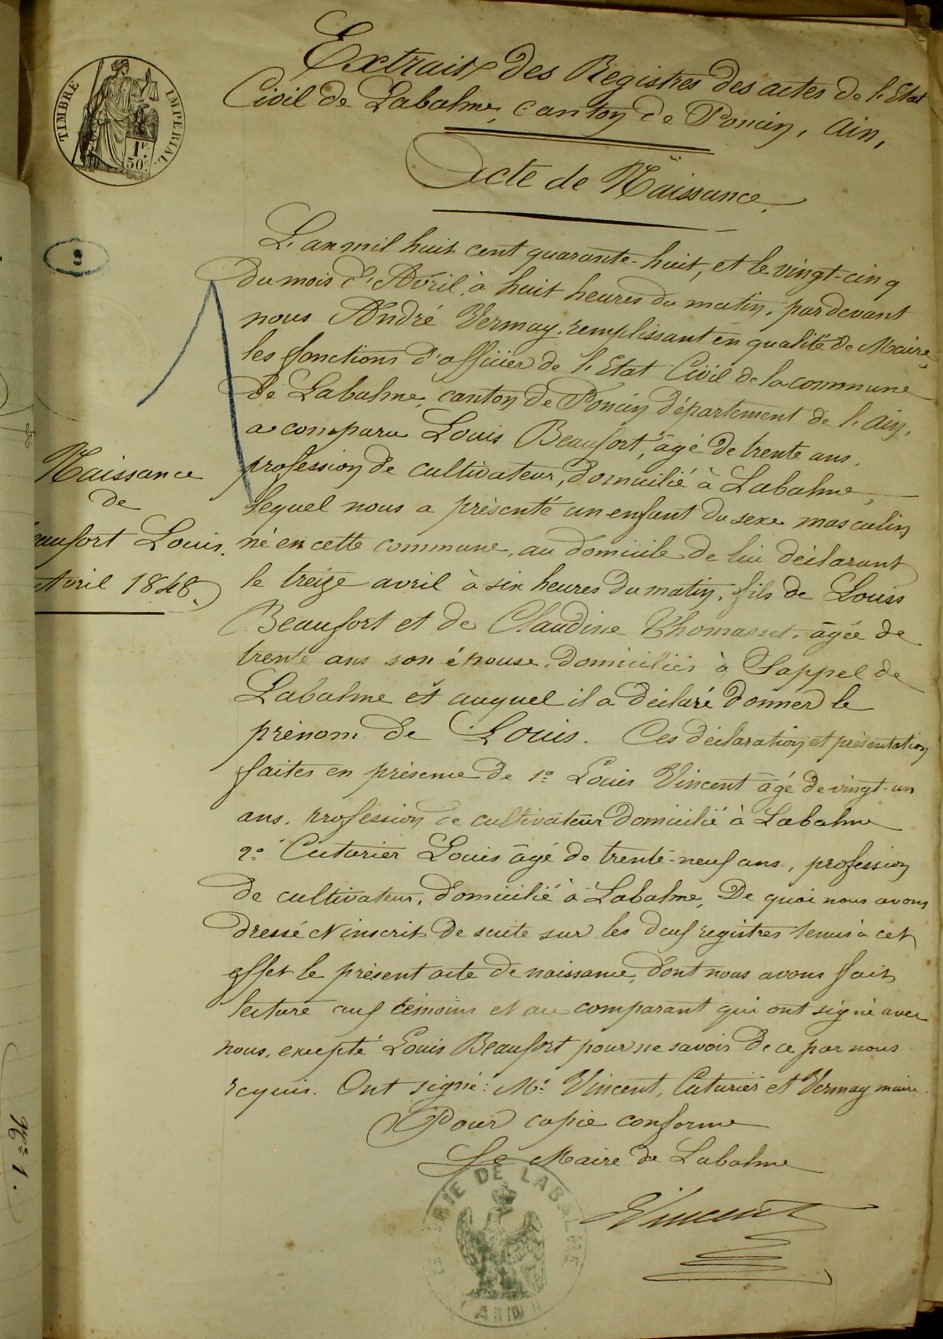 TIMBRE IMPERIAL.
1F.
50c
Extrait des Registres des actes de l'Etat
Civil de Labalme, canton de Poncin, Ain,
Acte de Naissance.
L'an mil huit cent quarante-huit, et le vingt-cinq
du mois d'Avril, à huit heures du matin, pardevant
nous André Vermay, remplissant en qualité de Maire,
les fonctions d'officier de l'Etat Civil de la commune
de Labalme, canton de Poncin département de l'Ain,
a comparu Louis Beaufort, âgé de trente ans,
profession de cultivateur, domicilié à Labalme,
lequel nous a présenté un enfant du sexe masculin
né en cette commune, au domicile de lui déclarant
le treize avril à six heures du matin, fils de Louis
Beaufort et de Claudine Thomasset, âgée de
trente ans son épouse, domiciliés à Sappel de
Labalme et auquel il a déclaré donner le
prénom de Louis. Ces déclaration et présentation
faites en présence de 1o Louis Vincent âgé de vingt-un
ans, profession de cultivateur domicilié à Labalme
2o Cuturier Louis âgé de trente-neuf ans, profession
de cultivateur, domicilié à Labalme, De quoi nous avons
dressé et inscrit de suite sur les deux registres tenus à cet
effet le présent acte de naissance, dont nous avons fait
lecture aux témoins et au comparant qui ont signé avec
nous, excepté Louis Beaufort pour ne savoir de ce par nous
requis. Ont signé: Mr Vincent, Cuturier et Vermay maire
Pour copie conforme
Le Maire de Labalme
Vincent
Naissance
de
eaufort Louis.
Avril 1848.
MAIRIE DE LABALME
(AIN)
No 1.